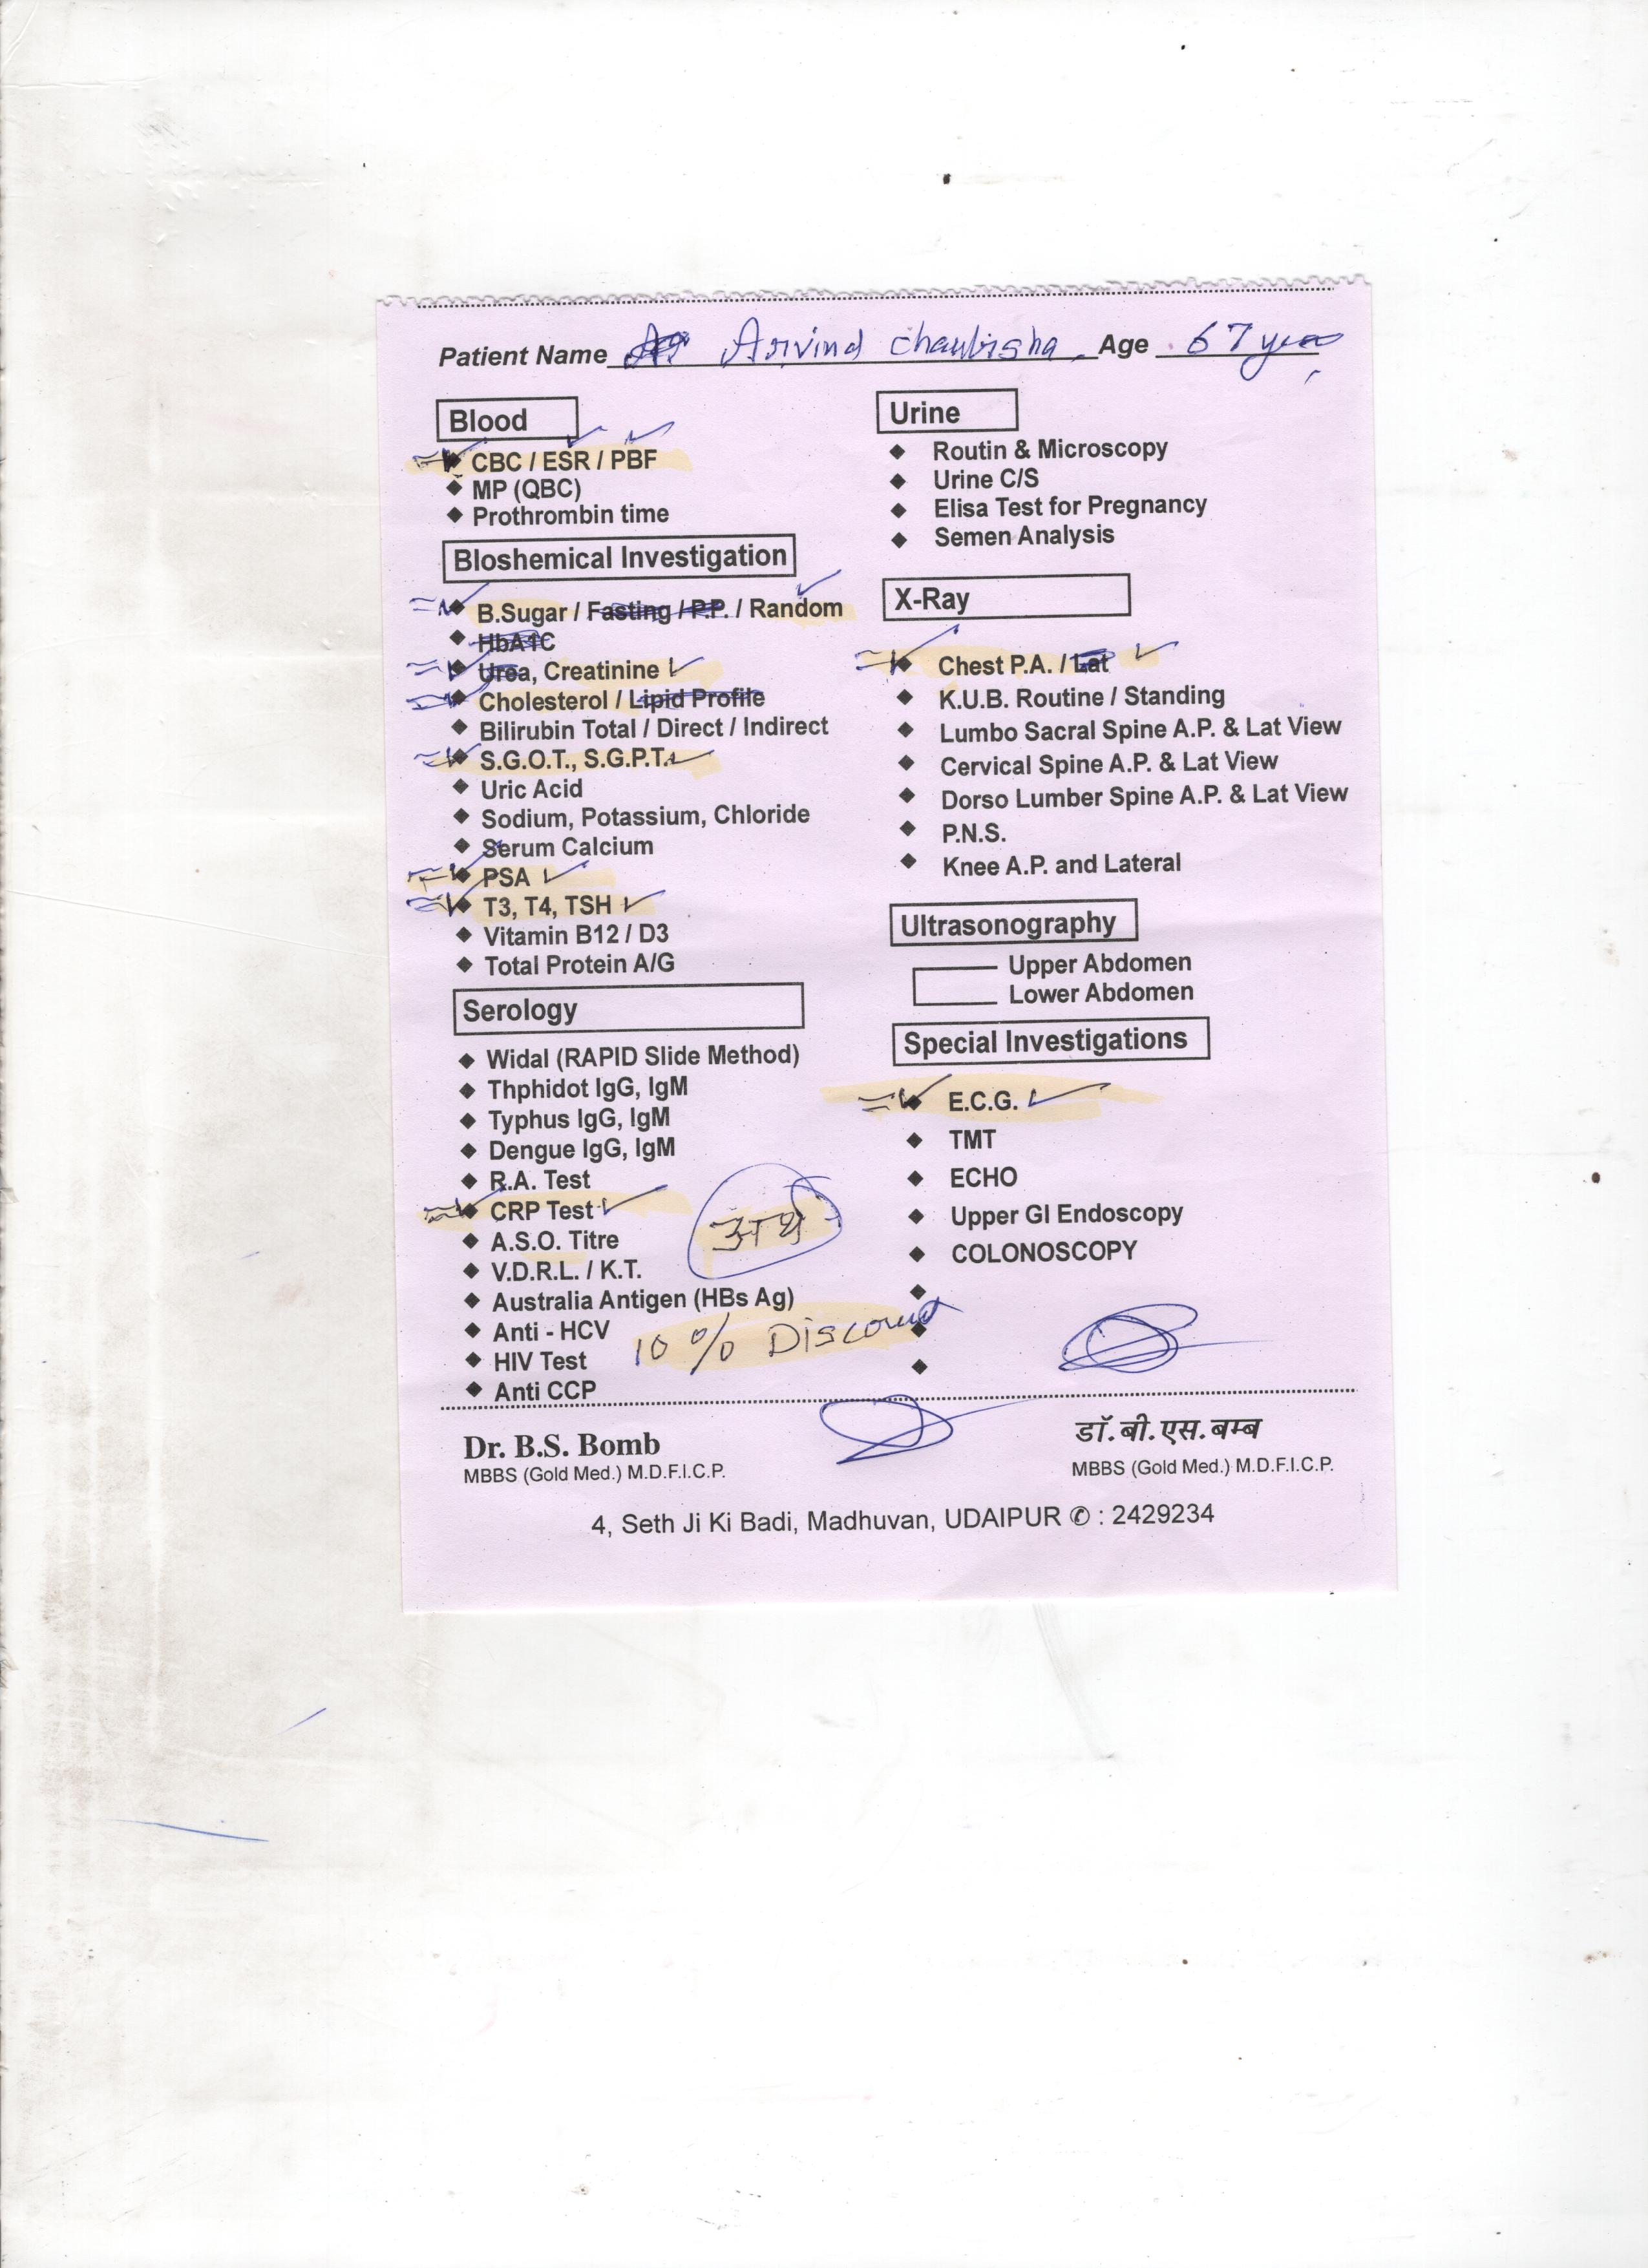 Patient Name Arvind Chaubisha Age 67 year
Blood
CBC / ESR / PBF
MP (QBC)
Prothrombin time
Bloshemical Investigation
B.Sugar / Fasting / P.P. / Random
HbA1C
Urea, Creatinine
Cholesterol / Lipid Profile
Bilirubin Total / Direct / Indirect
S.G.O.T., S.G.P.T.
Uric Acid
Sodium, Potassium, Chloride
Serum Calcium
PSA
T3, T4, TSH
Vitamin B12 / D3
Total Protein A/G
Serology
Widal (RAPID Slide Method)
Thphidot IgG, IgM
Typhus IgG, IgM
Dengue IgG, IgM
R.A. Test
CRP Test
A.S.O. Titre
V.D.R.L. / K.T.
Australia Antigen (HBs Ag)
Anti - HCV
HIV Test
Anti CCP
अर्थ
10 % Discount
Urine
Routin & Microscopy
Urine C/S
Elisa Test for Pregnancy
Semen Analysis
X-Ray
Chest P.A. / Lat
K.U.B. Routine / Standing
Lumbo Sacral Spine A.P. & Lat View
Cervical Spine A.P. & Lat View
Dorso Lumber Spine A.P. & Lat View
P.N.S.
Knee A.P. and Lateral
Ultrasonography
Upper Abdomen
Lower Abdomen
Special Investigations
E.C.G.
TMT
ECHO
Upper GI Endoscopy
COLONOSCOPY
Dr. B.S. Bomb
MBBS (Gold Med.) M.D.F.I.C.P.
डॉ.बी.एस.बम्ब
MBBS (Gold Med.) M.D.F.I.C.P.
4, Seth Ji Ki Badi, Madhuvan, UDAIPUR ✆ : 2429234